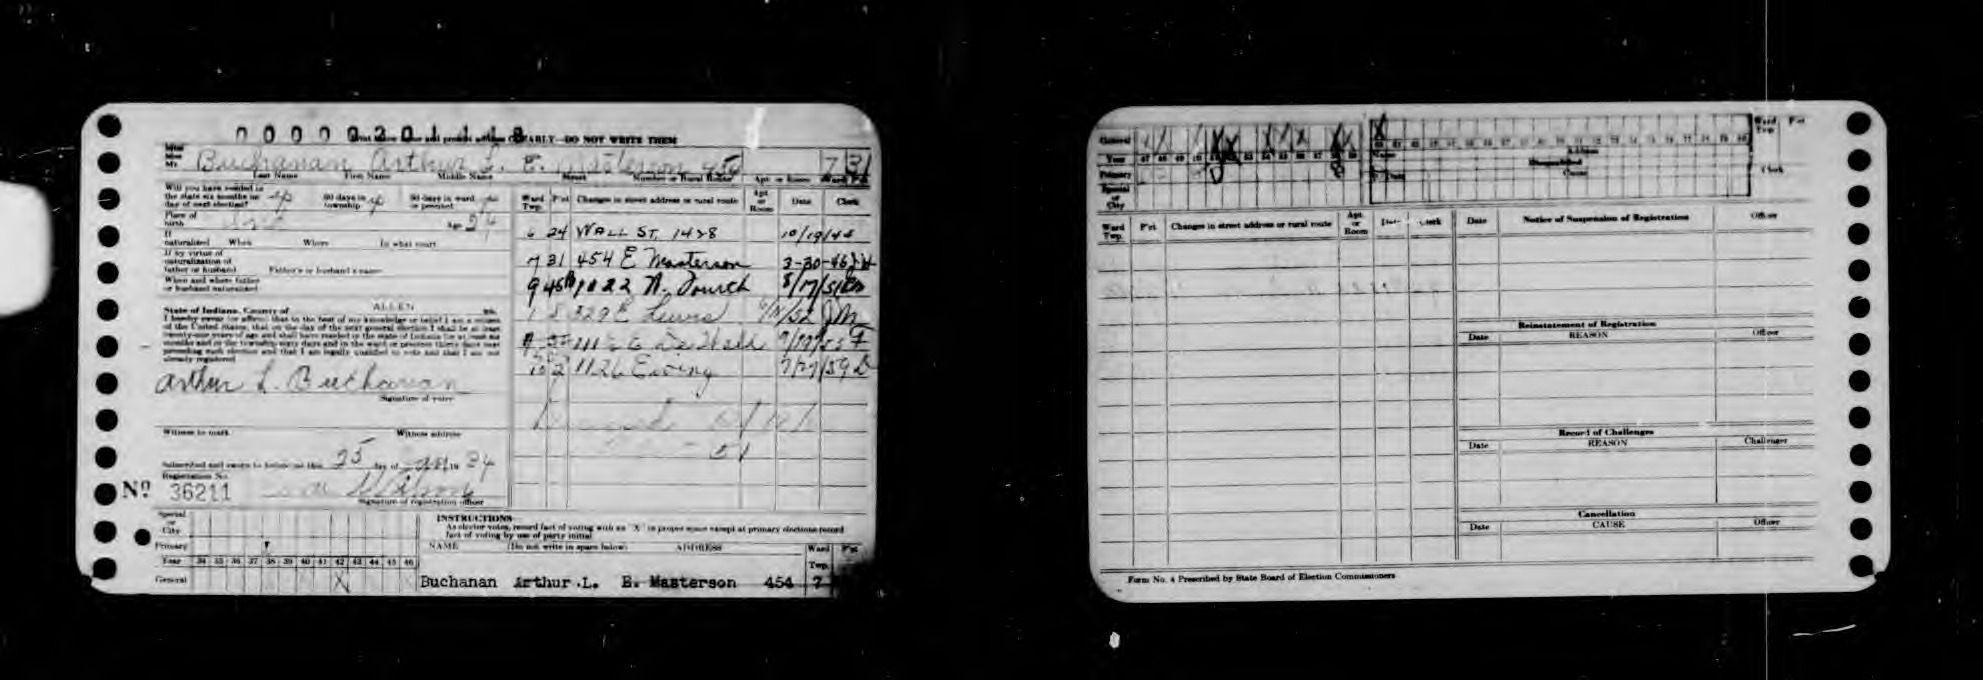 0000020111 8
ARLY—DO NOT WRITE THEM
Miss
Mrs
Mr. Buchanan Arthur L. E. Masterson 45 7 31
Last Name First Name Middle Name Street Number or Rural Route Apt. or Room Ward P'ct
Will you have resided in
the state six months on
day of next election? 60 days in
township? 30 days in ward
or precinct?
Place of
birth Age 24
If
naturalized When Where In what court
If by virtue of
naturalization of
father or husband Father's or husband's name
When and where father
or husband naturalized
State of Indiana, County of ALLEN ss:
I hereby swear (or affirm) that to the best of my knowledge or belief I am a citizen
of the United States, that on the day of the next general election I shall be at least
twenty-one years of age and shall have resided in the state of Indiana for at least six
months and in the township sixty days and in the ward or precinct thirty days next
preceding such election and that I am legally qualified to vote and that I am not
already registered
Arthur L. Buchanan
Signature of voter
Witness to mark Witness address
Subscribed and sworn to before me this 25 day of Jan 19 34
Registration No.
No 36211
Signature of registration officer
Ward
Twp. P'ct Changes in street address or rural route Apt.
or
Room Date Clerk
6 24 WALL ST. 1428 10/19/44
7 31 454 E Masterson 3-30-46
9 45 1022 N. Fourth 8/17/51
1 5 329 E Lewis JM
E DeWald F
10 2 1126 Ewing 7/27/59 D
Special
or
City
Primary
Year 34 35 36 37 38 39 40 41 42 43 44 45 46
General X
INSTRUCTIONS
As elector votes, record fact of voting with an "X" in proper space except at primary elections record
fact of voting by use of party initial
NAME (Do not write in space below) ADDRESS Ward
Twp. P'ct
Buchanan Arthur L. E. Masterson 454 7
General
Year 47 48 49 50 51 52 53 54 55 56 57 58 59
Primary
Special
or
City
60 61 62 63 64 65 66 67 68 69 70 71 72 73 74 75 76 77 78 79 80
Name
Disqualified
Cause
Ward
Twp. P'ct
Clerk
Ward
Twp. P'ct Changes in street address or rural route Apt.
or
Room Date Clerk
Date Notice of Suspension of Registration Officer
Reinstatement of Registration
Date REASON Officer
Record of Challenges
Date REASON Challenger
Cancellation
Date CAUSE Officer
Form No. 4 Prescribed by State Board of Election Commissioners